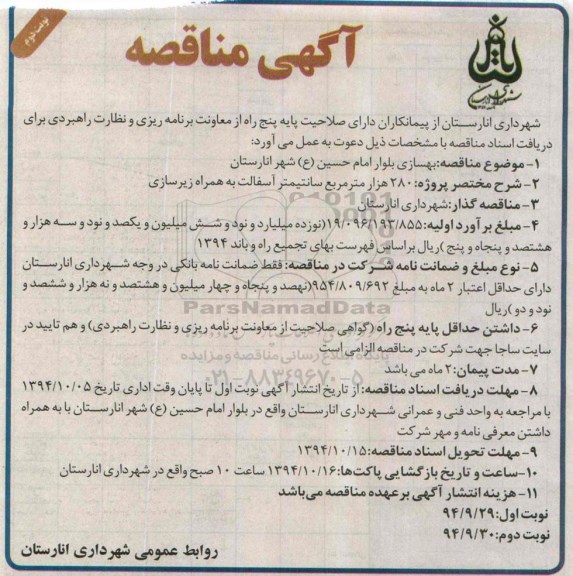 نوبت دوم
آگهی مناقصه
شهرداری انارستان از پیمانکاران دارای صلاحیت پایه پنج راه از معاونت برنامه ریزی و نظارت راهبردی برای
دریافت اسناد مناقصه با مشخصات ذیل دعوت به عمل می آورد:
۱-موضوع مناقصه:بهسازی بلوار امام حسین (ع) شهر انارستان
۲-شرح مختصر پروژه: ۲۸۰ هزار مترمربع سانتیمتر آسفالت به همراه زیرسازی
۳-مناقصه گذار:شهرداری انارستان
۴-مبلغ برآورد اولیه:۱۹/۰۹۶/۱۹۳/۸۵۵(نوزده میلیارد و نود و شش میلیون و یکصد و نود و سه هزار و
هشتصد و پنجاه و پنج )ریال براساس فهرست بهای تجمیع راه و باند ۱۳۹۴
۵-نوع مبلغ و ضمانت نامه شرکت در مناقصه: فقط ضمانت نامه بانکی در وجه شهرداری انارستان
دارای حداقل اعتبار ۲ ماه به مبلغ ۹۵۴/۸۰۹/۶۹۲(نهصد و پنجاه و چهار میلیون و هشتصد و نه هزار و ششصد و
نود و دو )ریال
۶-داشتن حداقل پایه پنج راه (گواهی صلاحیت از معاونت برنامه ریزی و نظارت راهبردی) و هم تایید در
سایت ساجا جهت شرکت در مناقصه الزامی است
۷-مدت پیمان:۲ ماه می باشد
۸-مهلت دریافت اسناد مناقصه: از تاریخ انتشار آگهی نوبت اول تا پایان وقت اداری تاریخ ۱۳۹۴/۱۰/۰۵
با مراجعه به واحد فنی و عمرانی شهرداری انارستان واقع در بلوار امام حسین (ع) شهر انارستان با به همراه
داشتن معرفی نامه و مهر شرکت
۹-مهلت تحویل اسناد مناقصه:۱۳۹۴/۱۰/۱۵
۱۰-ساعت و تاریخ بازگشایی پاکت‌ها:۱۳۹۴/۱۰/۱۶ ساعت ۱۰ صبح واقع در شهرداری انارستان
۱۱-هزینه انتشار آگهی برعهده مناقصه می‌باشد
نوبت اول:۹۴/۹/۲۹
نوبت دوم:۹۴/۹/۳۰
روابط عمومی شهرداری انارستان
ParsNamadData
پایگاه اطلاع رسانی مناقصه و مزایده
۰۲۱-۸۸۳۴۹۶۷۰-۵